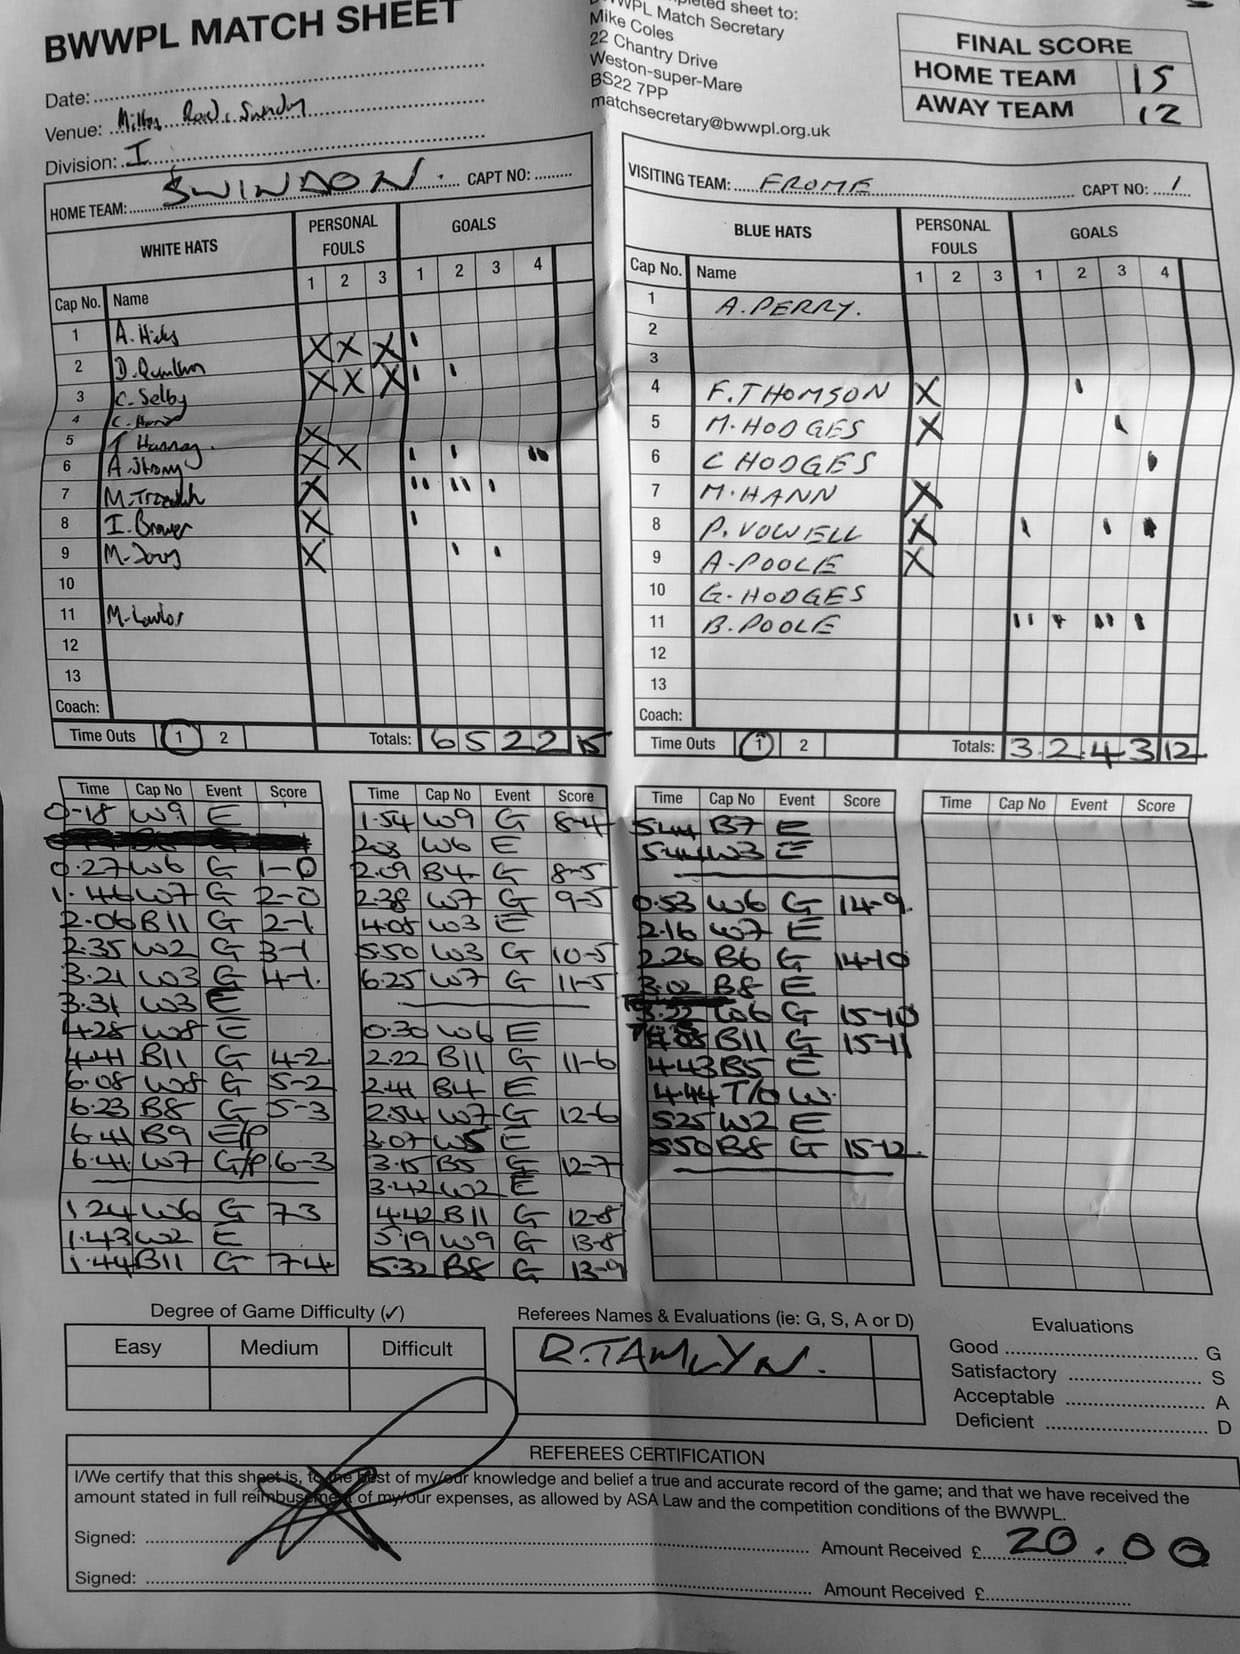 BWWPL MATCH SHEET
Date:
Venue: Milton Road,
Division: I
completed sheet to:
BWWPL Match Secretary
Mike Coles
22 Chantry Drive
Weston-super-Mare
BS22 7PP
matchsecretary@bwwpl.org.uk
FINAL SCORE
HOME TEAM 15
AWAY TEAM 12
HOME TEAM: SWINDON. CAPT NO:
WHITE HATS PERSONAL FOULS GOALS
Cap No. Name 1 2 3 1 2 3 4
1 A. Hicks
2 D. X X X
3 C. Selby X X X
4 C.
5 T Hannay. X
6 A. X X
7 M. X
8 I. Brower X
9 M. X
10
11 M. Lawlor
12
13
Coach:
Time Outs 1 2 Totals: 6 5 2 2 15
VISITING TEAM: FROME CAPT NO: 1
BLUE HATS PERSONAL FOULS GOALS
Cap No. Name 1 2 3 1 2 3 4
1 A. PERRY.
2
3
4 F. THOMSON X
5 M. HODGES X
6 C HODGES
7 M. HANN X
8 P. VOWELL X
9 A. POOLE X
10 G. HODGES
11 B. POOLE
12
13
Coach:
Time Outs 1 2 Totals: 3 2 4 3 12
Time Cap No Event Score
0-18 W9 E
0.27 W6 G 1-0
1.46 W7 G 2-0
2.06 B11 G 2-1
2.35 W2 G 3-1
3.21 W3 G 4-1.
3.31 W3 E
4.28 W8 E
4.41 B11 G 4-2
6.08 W8 G 5-2
6.23 B8 G 5-3
6.41 B9 E/P
6.41 W7 G/P 6-3
1.24 W6 G 7-3
1.43 W2 E
1.44 B11 G 7-4.
Time Cap No Event Score
1.54 W9 G 8-4
2.03 W6 E
2.09 B4 G 8-5
2.38 W7 G 9-5
4.05 W3 E
5.50 W3 G 10-5
6.25 W7 G 11-5
0.30 W6 E
2.22 B11 G 11-6
2.41 B4 E
2.54 W7 G 12-6
3.07 W5 E
3.15 B5 G 12-7
3.42 W2 E
4.42 B11 G 12-8
5.19 W9 G 13-8
5.32 B8 G 13-9
Time Cap No Event Score
5.44 B7 E
5.44 W3 E
0.53 W6 G 14-9.
2.16 W7 E
2.26 B6 G 14-10
3.02 B8 E
3.22 W6 G 15-10
4.05 B11 G 15-11
4.43 B5 E
4.44 T/O W.
5.25 W2 E
5.50 B8 G 15-12.
Time Cap No Event Score
Degree of Game Difficulty (✓)
Easy Medium Difficult
Referees Names & Evaluations (ie: G, S, A or D)
R. TAMLYN.
Evaluations
Good G
Satisfactory S
Acceptable A
Deficient D
REFEREES CERTIFICATION
I/We certify that this sheet is, to the best of my/our knowledge and belief a true and accurate record of the game; and that we have received the
amount stated in full reimbusement of my/our expenses, as allowed by ASA Law and the competition conditions of the BWWPL.
Signed: Amount Received £ 20.00
Signed: Amount Received £